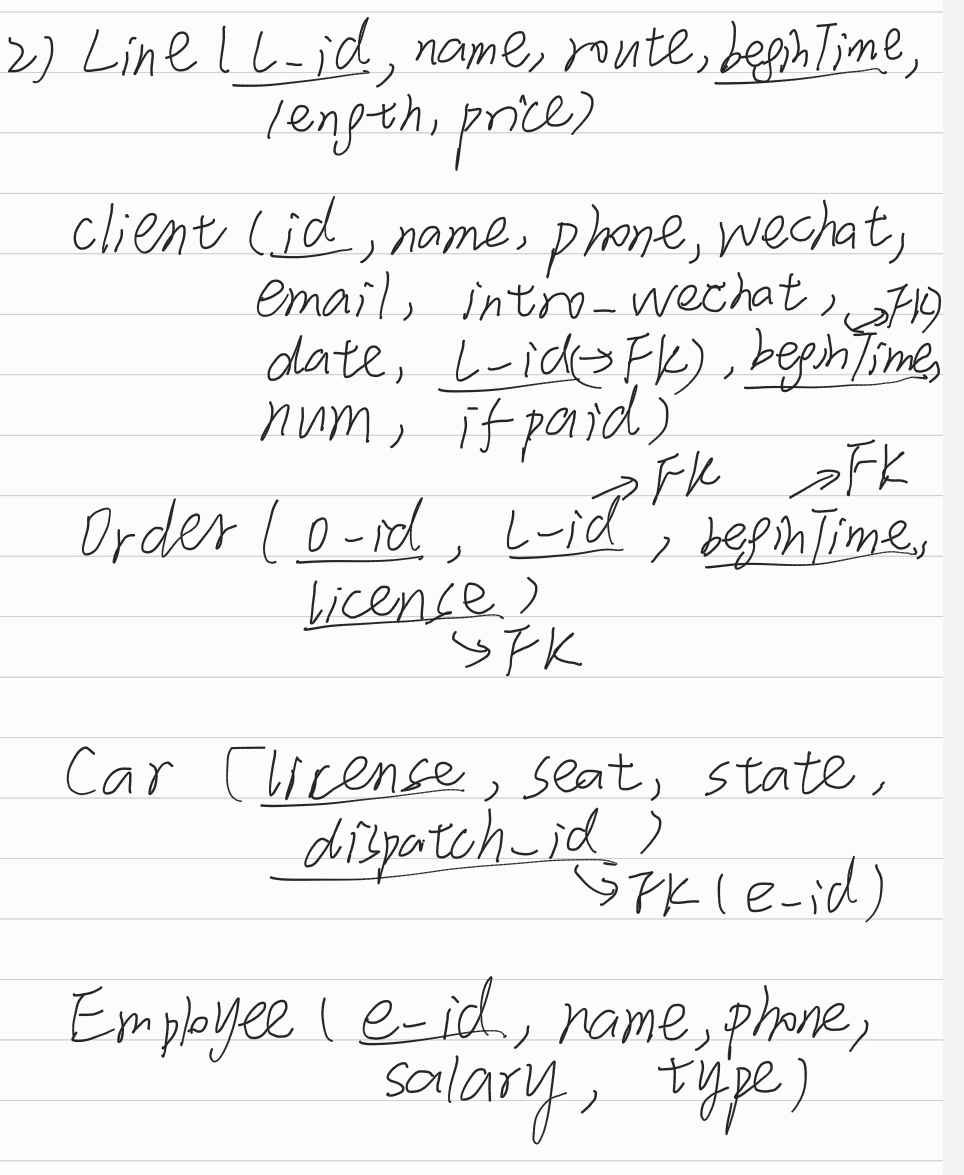 2) Line ( L-id, name, route, beginTime,
length, price)
client ( id, name, phone, wechat,
email, intro-wechat, →FK)
date, L-id(→FK), beginTime,
num, if paid)
→FK →FK
Order ( o-id, L-id, beginTime,
licence)
→FK
Car (license, seat, state,
dispatch-id)
→FK (e-id)
Employee ( e-id, name, phone,
salary, type)